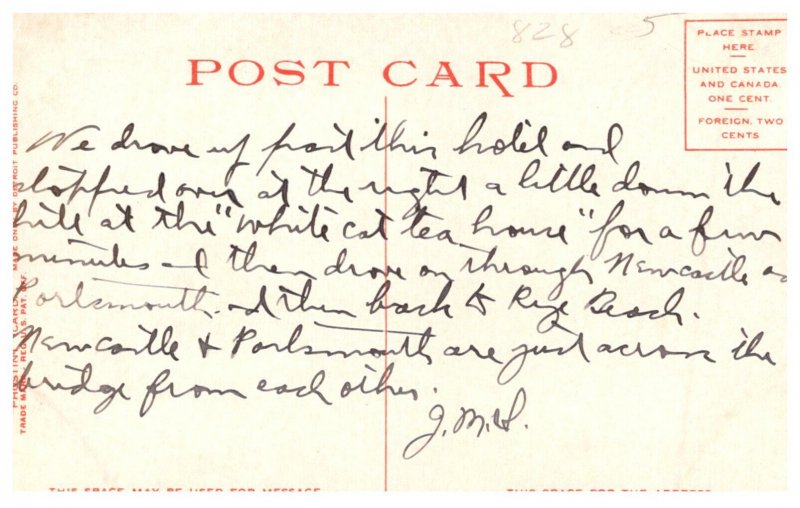 828 5
PLACE STAMP
HERE
UNITED STATES
AND CANADA
ONE CENT.
FOREIGN, TWO
CENTS
POST CARD
We drove up past this hotel and
stopped over at the right a little down the
hill at the "White cat tea house" for a few
minutes - & then drove on through Newcastle &
Portsmouth. & then back to Rye Beach.
Newcastle & Portsmouth are just across the
bridge from each other.
J.M.S.
MADE ONLY BY DETROIT PUBLISHING CO.
TRADE MARK, REG. U.S. PAT. OFF.
THIS SPACE MAY BE USED FOR MESSAGE
THIS SPACE FOR THE ADDRESS